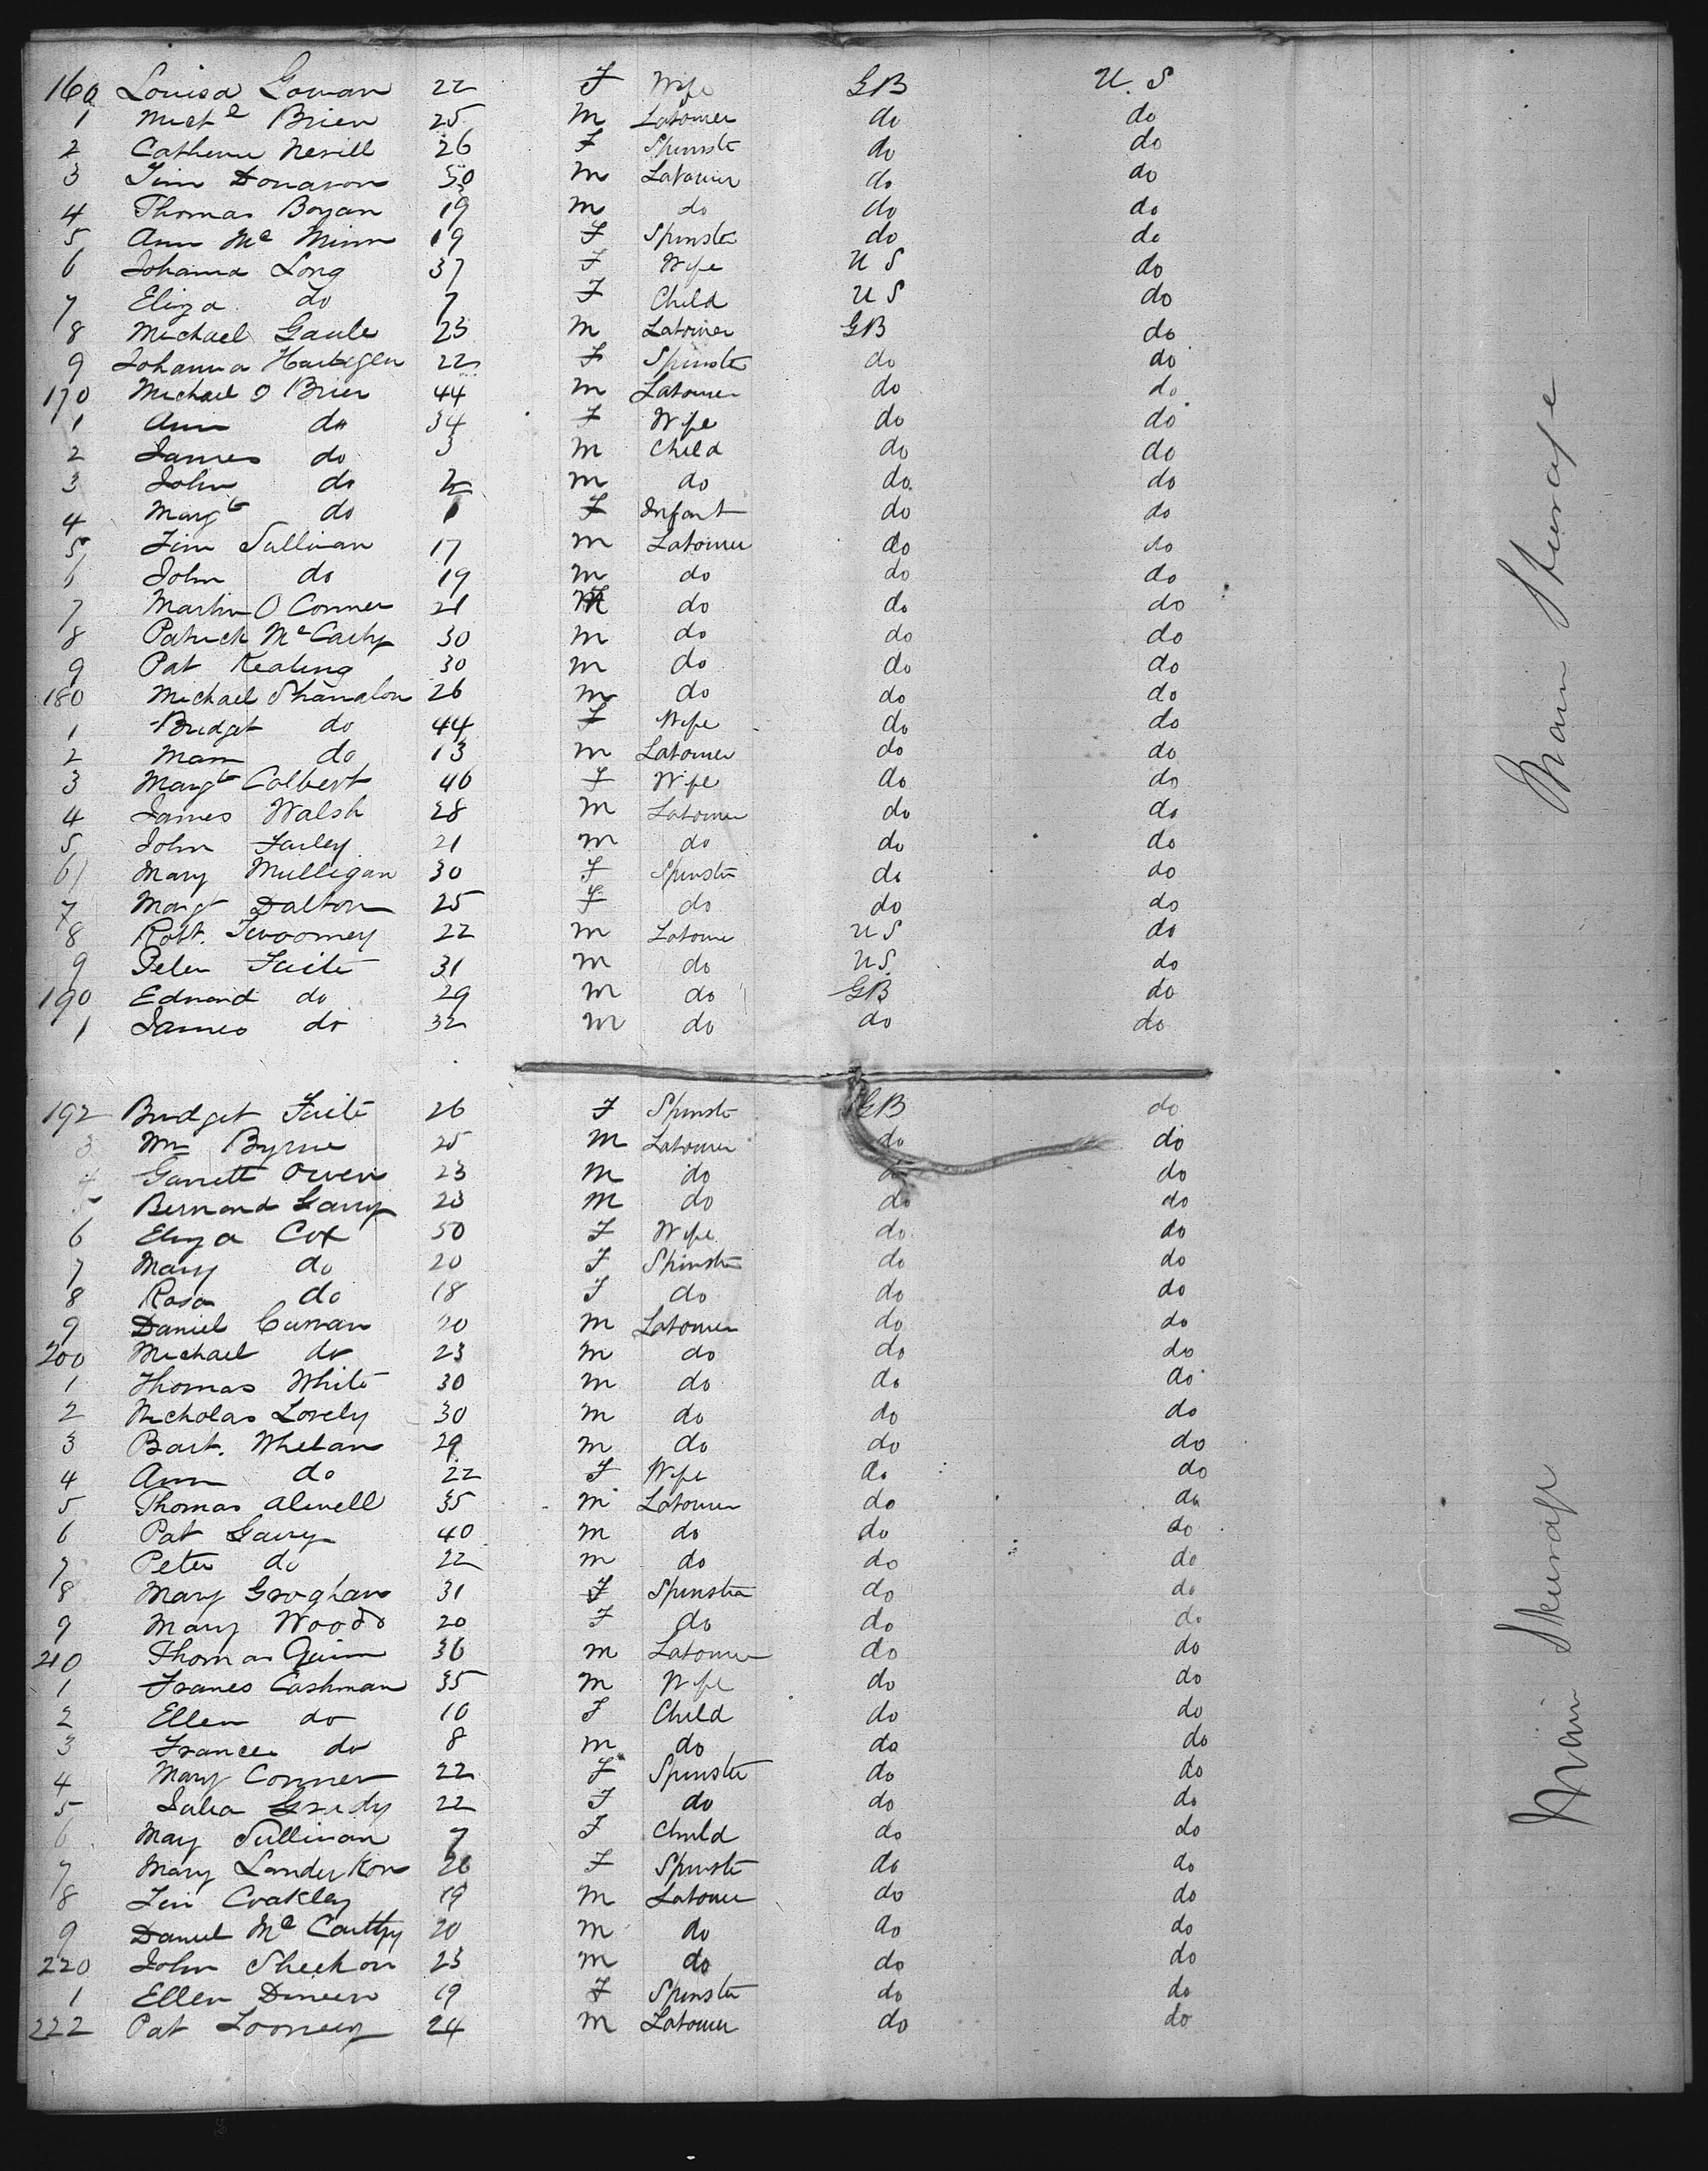 160 Louisa Gowan 22 F Wife GB U.S
1 Michl Brien 25 M Labourer do do
2 Catherine Nevill 26 F Spinster do do
3 Tim Donavon 30 M Labourer do do
4 Thomas Bogan 19 M do do do
5 Ann Mc Minn 19 F Spinster do do
6 Johanna Long 37 F Wife U S do
7 Eliza do 7 F Child U S do
8 Michael Gaule 23 M Labourer GB do
9 Johanna 22 F Spinster do do
170 Michael O Brien 44 M Labourer do do
1 Ann do 34 F Wife do do
2 James do 3 M Child do do
3 John do M do do do
4 Margt do 1 F Infant do do
5 Tim Sullivan 17 M Labourer do do
6 John do 19 M do do do
7 Martin O Conner 21 M do do do
8 Patrick McCarthy 30 M do do do
9 Pat Keating 30 M do do do
180 Michael Shanahon 26 M do do do
1 Bridget do 44 F Wife do do
2 do 13 M Labourer do do
3 Margt Colbert 40 F Wife do do
4 James Walsh 28 M Labourer do do
5 John Farley 21 M do do do
6 Mary Mulligan 30 F Spinster do do
7 Margt Dalton 25 F do do do
8 Robt. Twoomey 22 M Labourer U S do
9 Peter Faite 31 M do U S. do
190 Edward do 29 M do GB do
1 James do 32 M do do do
192 Bridget Faite 26 F Spinster GB do
3 Wm Byrne 25 M Labourer do do
4 Garrett Owens 23 M do do do
5 Bernard Garry 23 M do do do
6 Eliza Cox 50 F Wife do do
7 Mary do 20 F Spinster do do
8 Rosa do 18 F do do do
9 Daniel Curran 20 M Labourer do do
200 Michael do 23 M do do do
1 Thomas White 30 M do do do
2 Nicholas Lovely 30 M do do do
3 Bart. Whelan 29 M do do do
4 Ann do 22 F Wife do do
5 Thomas Alwell 35 M Labourer do do
6 Pat Garry 40 M do do do
7 Peter do 22 M do do do
8 Mary Groghan 31 F Spinster do do
9 Mary Woods 20 F do do do
210 Thomas Quinn 36 M Labourer do do
1 Frances Cashman 35 M Wife do do
2 Ellen do 10 F Child do do
3 Frances do 8 M do do do
4 Mary Conner 22 F Spinster do do
5 Julia Grady 22 F do do do
6 May Sullivan 7 F Child do do
7 Mary Landerkon 20 F Spinster do do
8 Tim Coakley 19 M Labourer do do
9 Daniel Mc Carthy 20 M do do do
220 John Sheehon 23 M do do do
1 Ellen Dineen 19 F Spinster do do
222 Pat Loomey 24 M Labourer do do
Main Steerage
Main Steerage